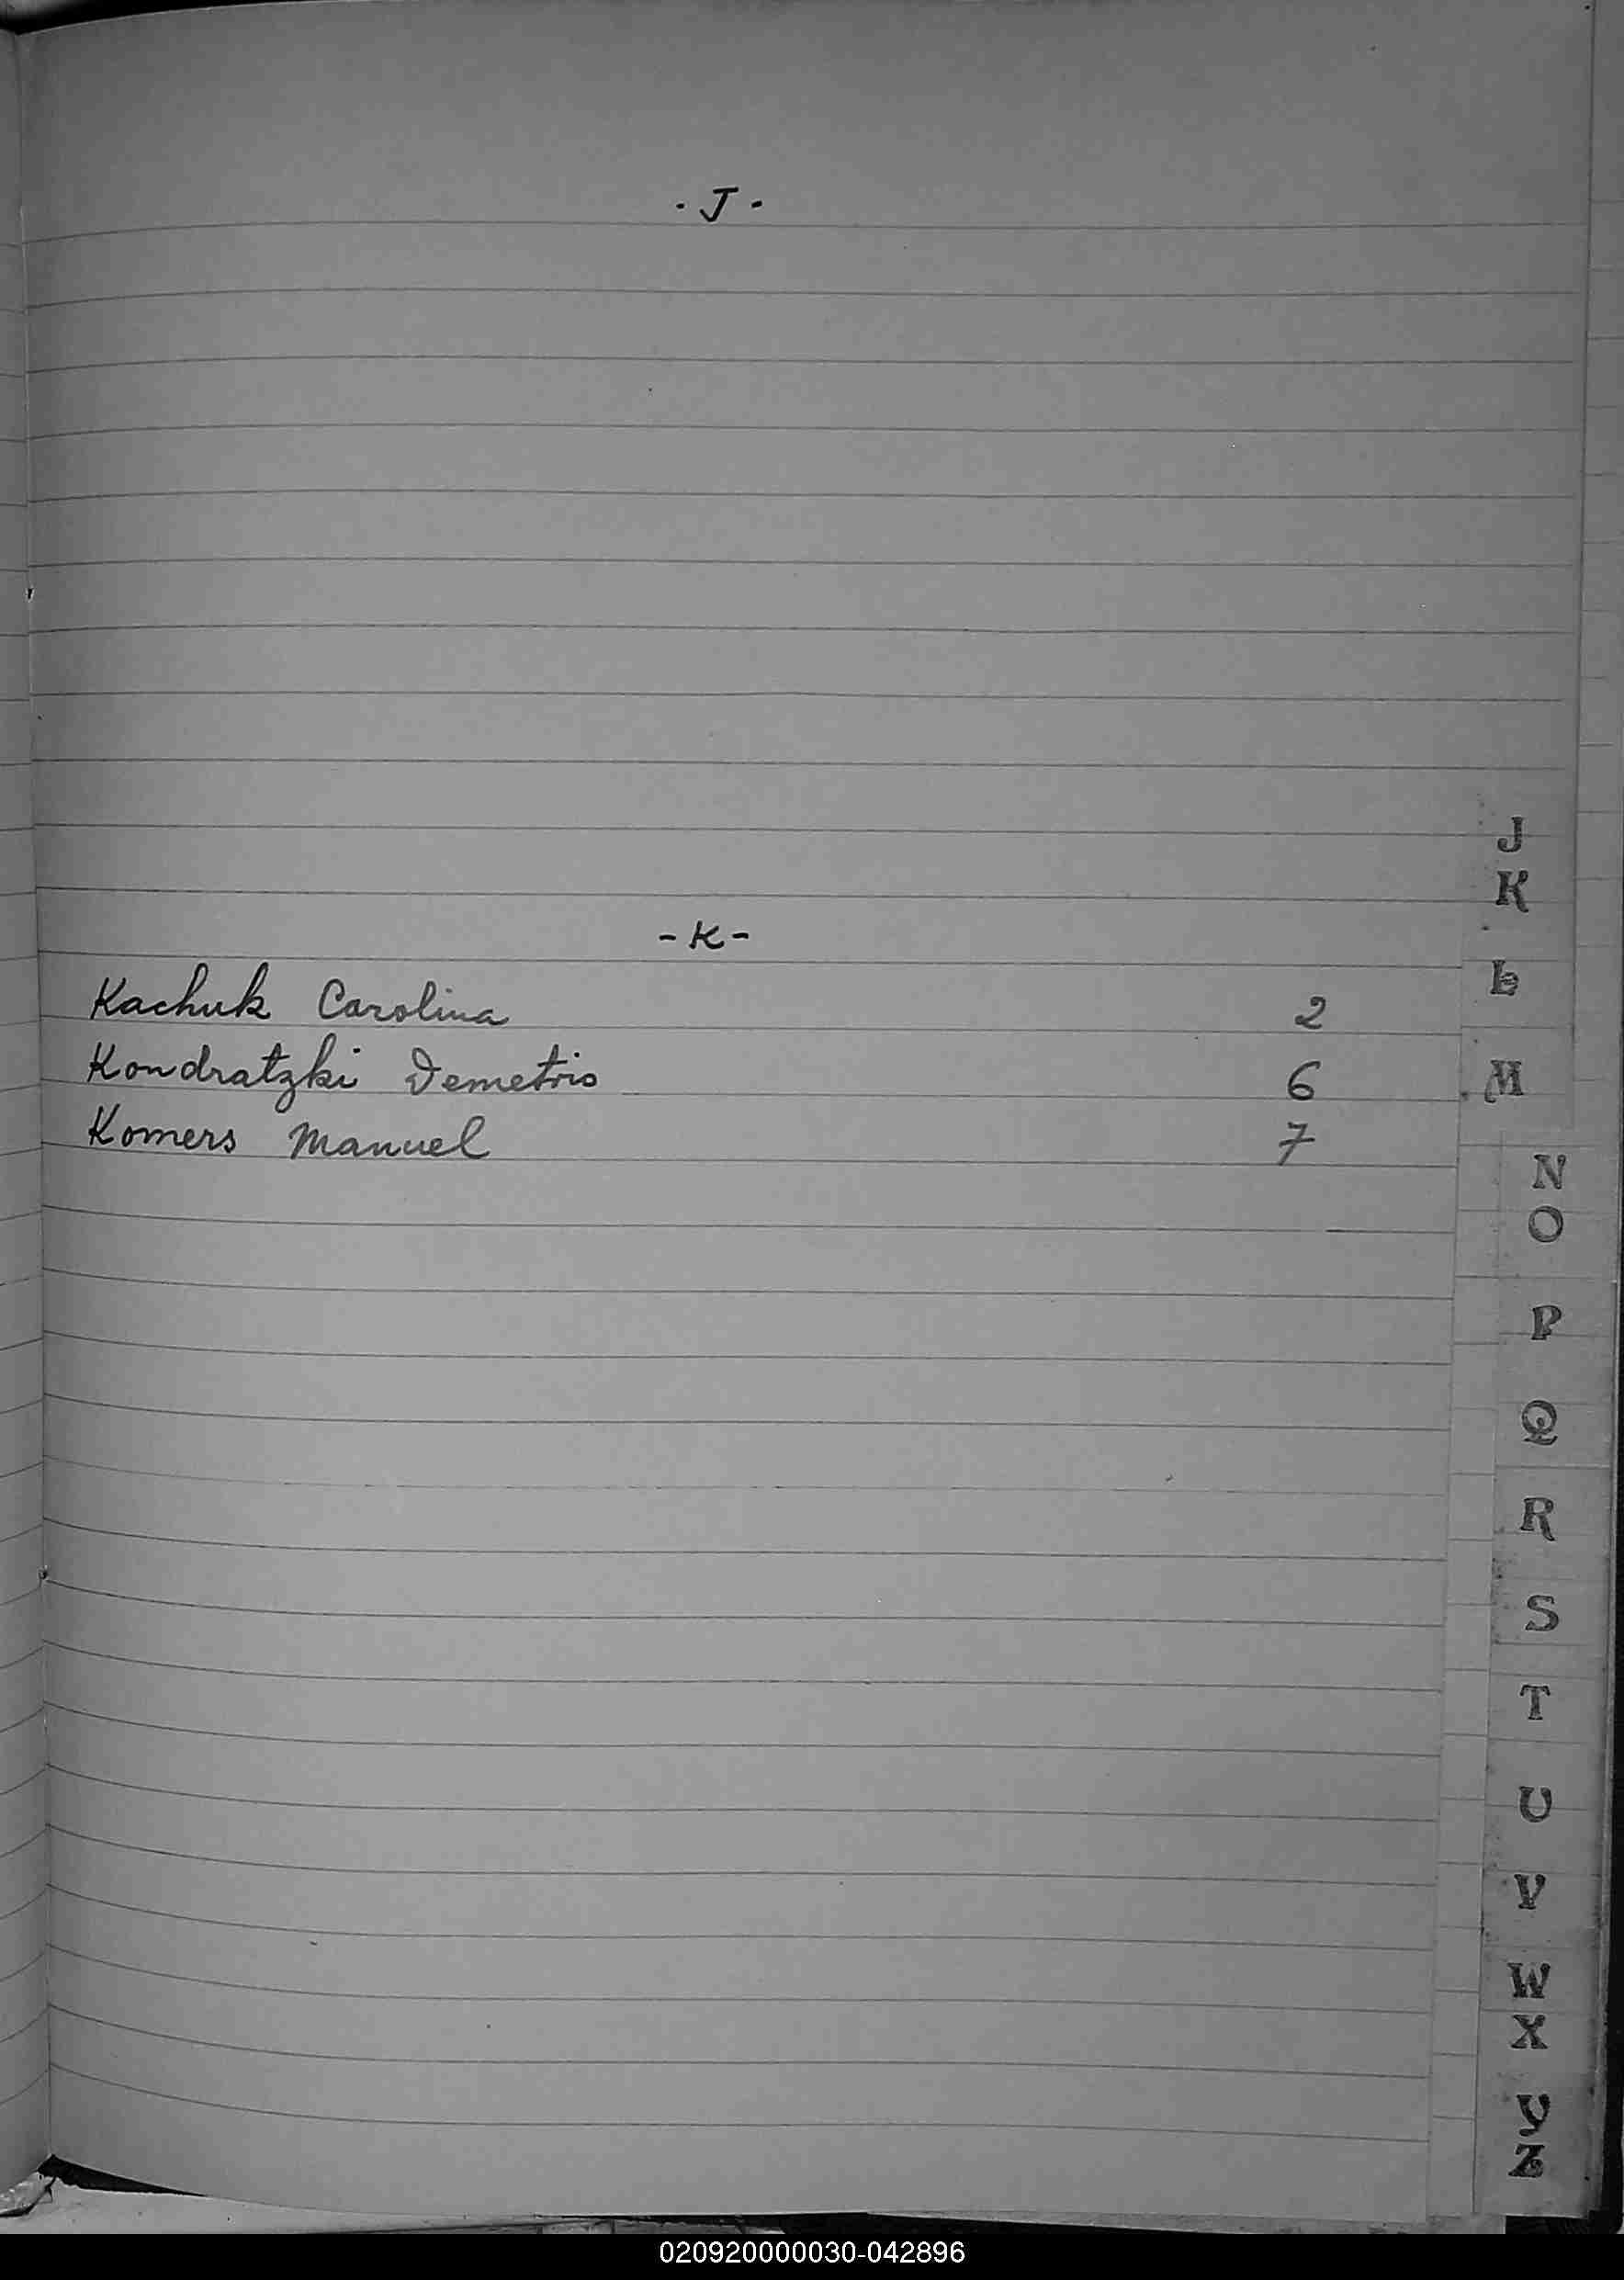 - J -
- K -
Kachuk Carolina 2
Kondratzki Demetrio 6
Komers Manuel 7
J
K
L
M
N
O
P
Q
R
S
T
U
V
W
X
Y
Z
020920000030-042896